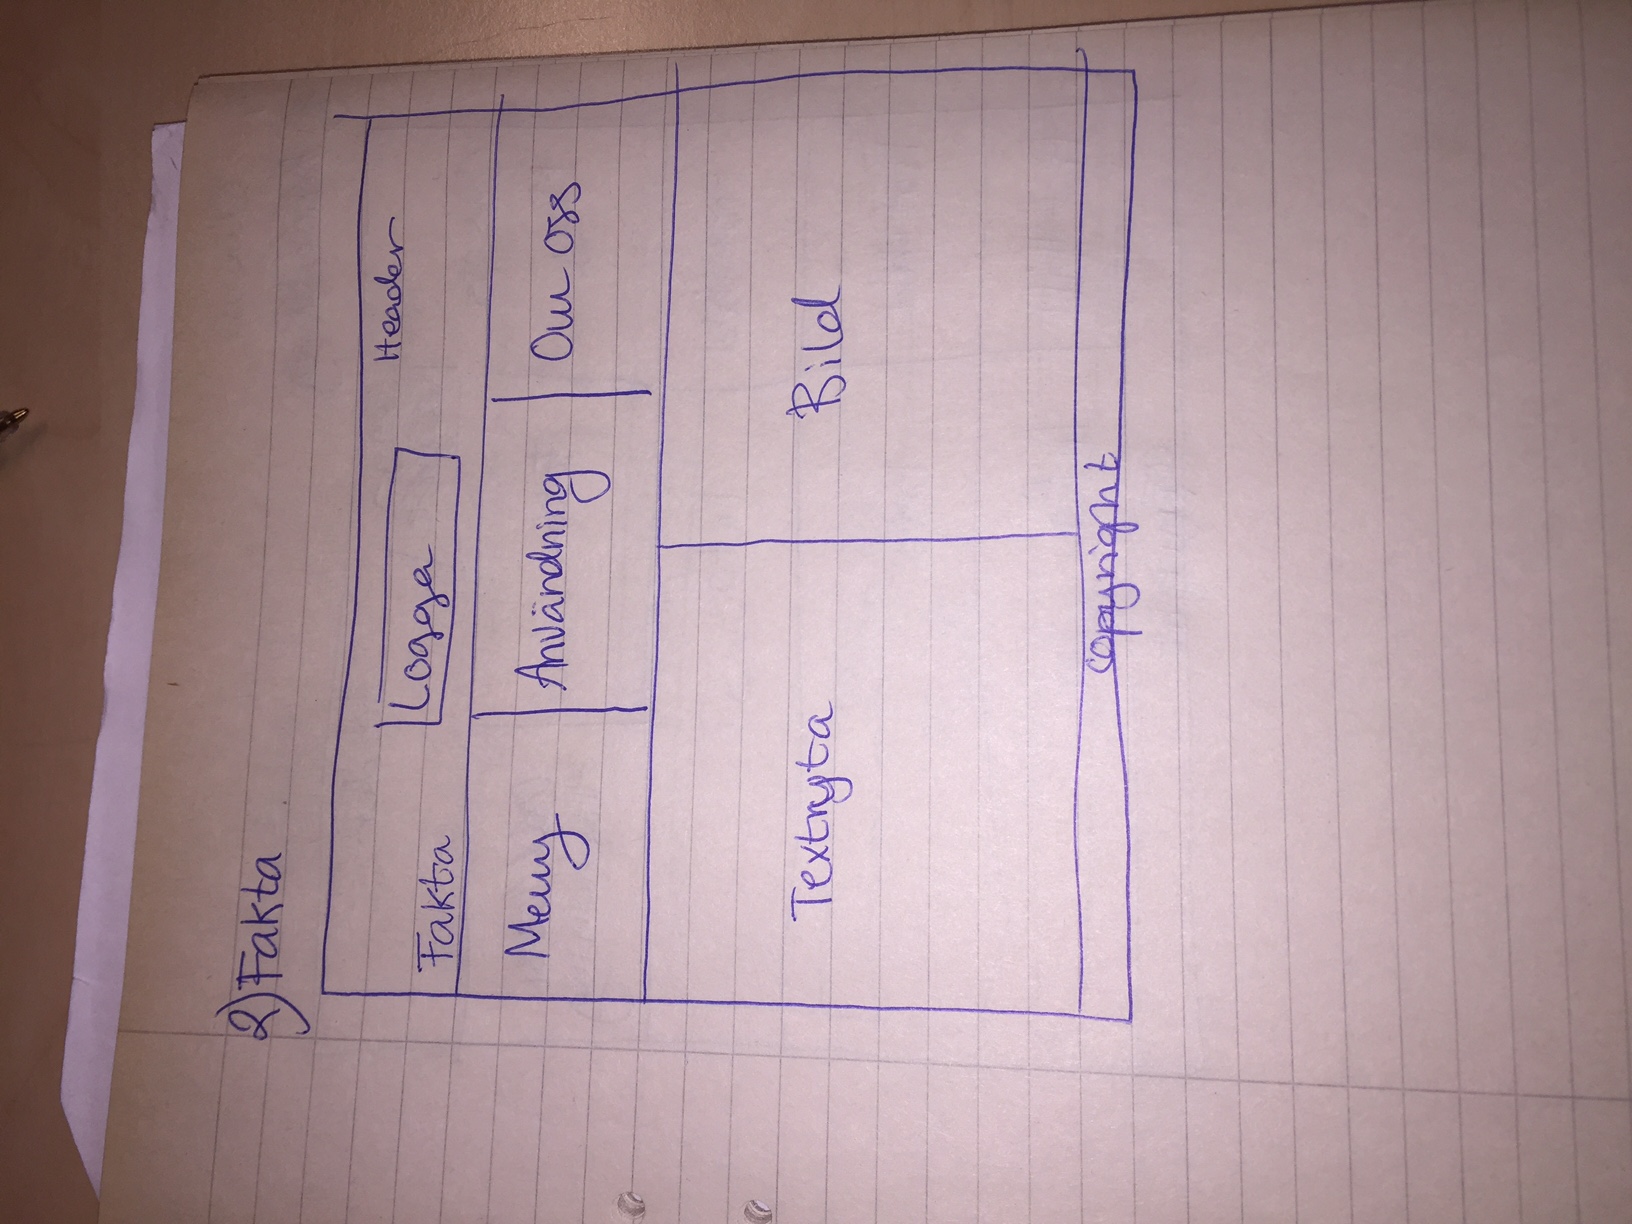 2) Fakta
Header
Logga
Fakta
Meny
Användning
Om oss
Textryta
Bild
copyright